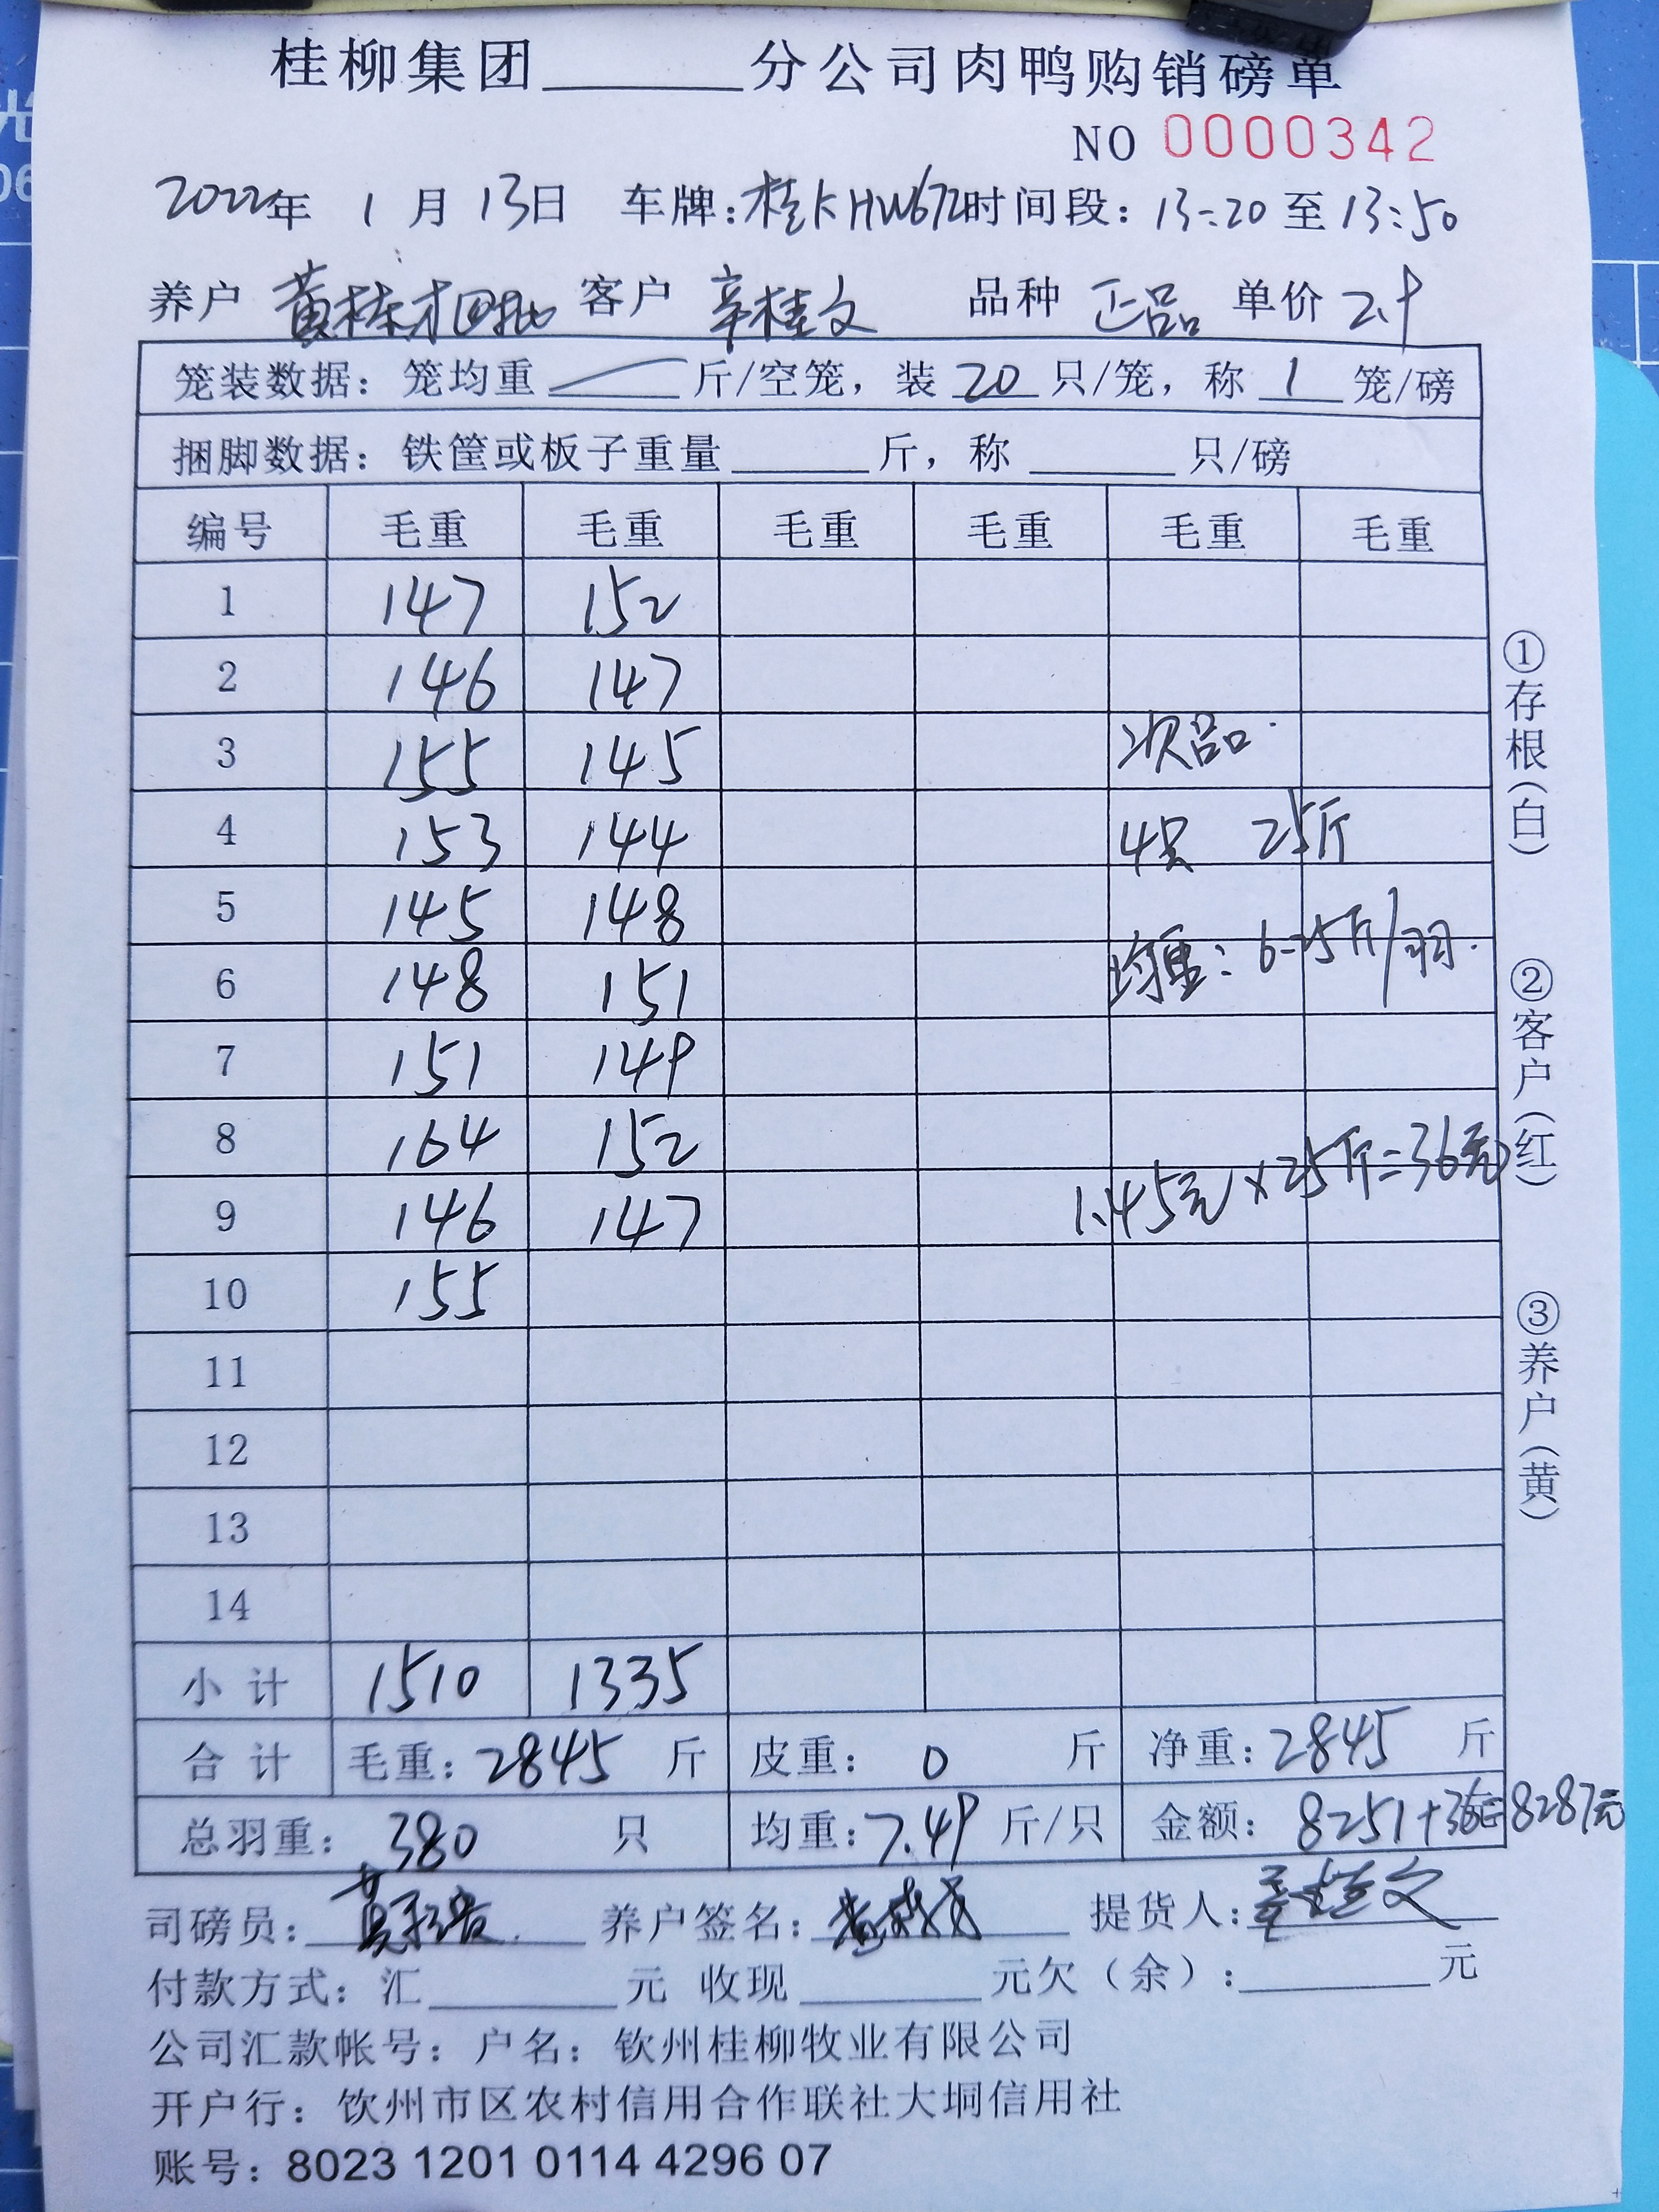 桂柳集团______分公司肉鸭购销磅单
NO 0000342
2022年 1月 13日 车牌:桂KHW672 时间段: 13:20 至 13:50
养户 黄栋才四批 客户 辛桂文 品种 正品 单价 2.9
笼装数据: 笼均重 — 斤/空笼, 装 20 只/笼, 称 1 笼/磅
捆脚数据: 铁筐或板子重量______斤, 称______只/磅
编号 毛重 毛重 毛重 毛重 毛重 毛重
1 147 152
2 146 147
3 155 145 次品
4 153 144 4只 25斤
5 145 148
6 148 151 均重: 6.25斤/羽.
7 151 149
8 164 152
9 146 147 1.45元×25斤=36元
10 155
11
12
13
14
小计 1510 1335
合计 毛重: 2845 斤 皮重: 0 斤 净重: 2845 斤
总羽重: 380 只 均重: 7.49 斤/只 金额: 8251+36元=8287元
司磅员: 养户签名: 提货人: 辛桂文
付款方式: 汇______元 收现______元欠(余):______元
公司汇款帐号: 户名: 钦州桂柳牧业有限公司
开户行: 钦州市区农村信用合作联社大垌信用社
账号: 8023 1201 0114 4296 07
①存根(白)
②客户(红)
③养户(黄)